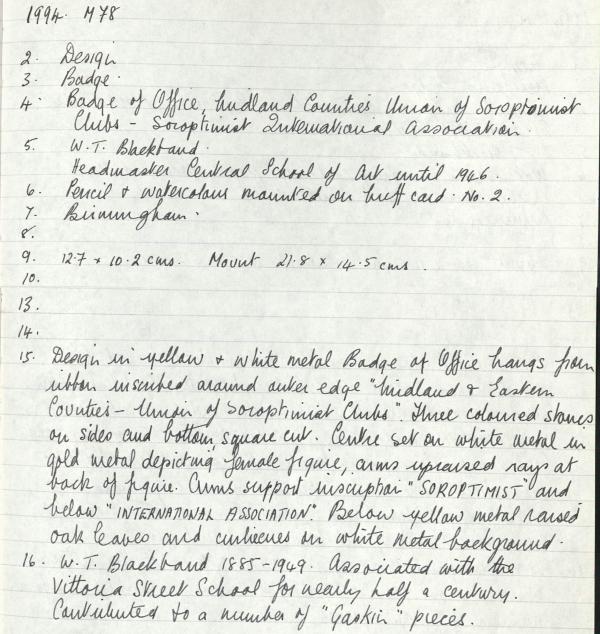 1994. M78
2. Design
3. Badge.
4. Badge of Office, Midland Counties Union of Soroptimist
Clubs - Soroptimist International Association.
5. W.T. Blackband.
Headmaster Central School of Art until 1946.
6. Pencil & watercolour mounted on buff card. No. 2.
7. Birmingham.
8.
9. 12.7 x 10.2 cms. Mount 21.8 x 14.5 cms.
10.
13.
14.
15. Design in yellow & white metal Badge of Office hangs from
ribbon inscribed around outer edge "Midland & Eastern
Counties - Union of Soroptimist Clubs". Three coloured stones
on sides and bottom, square cut. Centre set on white metal in
gold metal depicting female figure, arms upraised rays at
back of figure. Arms support inscription "SOROPTIMIST" and
below "INTERNATIONAL ASSOCIATION." Below yellow metal raised
oak leaves and curlicues on white metal background.
16. W.T. Blackband 1885-1949. Associated with the
Vittoria Street School for nearly half a century.
Contributed to a number of "Gaskin" pieces.